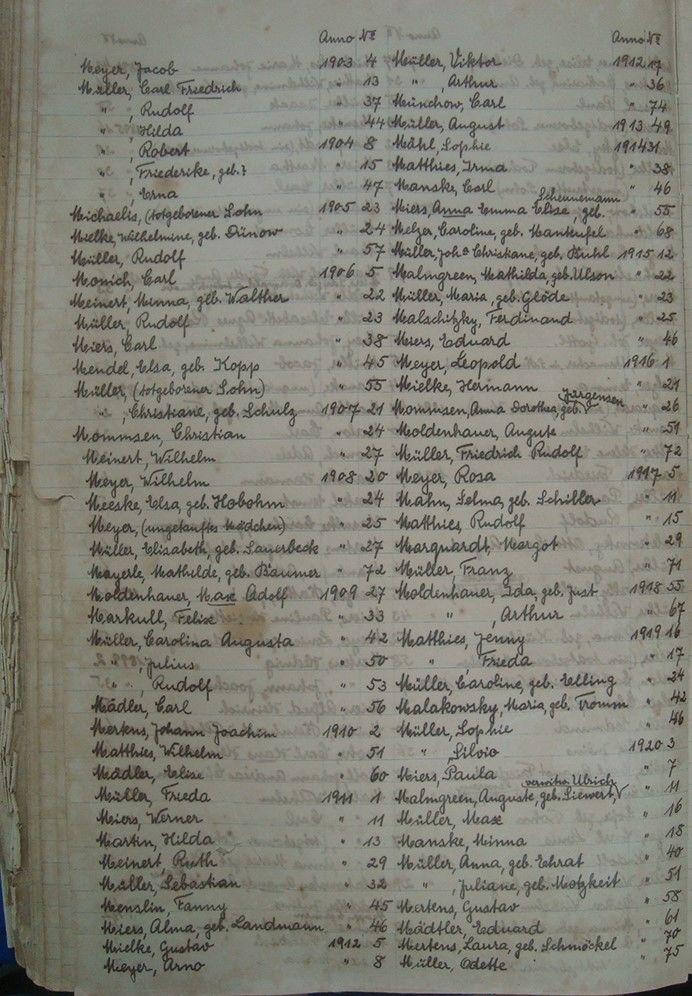 Anno No
Meyer, Jacob 1903 4
Müller, Carl Friedrich " 13
" , Rudolf " 37
" , Hilda " 44
" , Robert 1904 8
" , Friederike, geb.? " 15
" , Erna " 47
Michaelis, (totgeborener Sohn 1905 23
Mielke, Wilhelmine, geb. Dünow " 24
Müller, Rudolf " 57
Monich, Carl 1906 5
Meinert, Minna, geb. Walther " 22
Müller, Rudolf " 23
Miers, Carl " 38
Mendel, Elsa, geb. Kopp " 45
Müller, (totgeborener Sohn) " 55
" , Christiane, geb. Schulz 1907 21
Mommsen, Christian " 24
Meinert, Wilhelm " 27
Meyer, Wilhelm 1908 20
Meeske, Elsa, geb. Hobohm " 24
Meyer, (ungetauftes Mädchen) " 25
Müller, Elisabeth, geb. Sauerbeck " 27
Mayerle, Mathilde, geb. Bäumer " 72
Moldenhauer, Max Adolf 1909 27
Markull, Felix " 33
Müller, Carolina Augusta " 42
" , Julius " 50
" , Rudolf " 53
Mädler, Carl " 56
Mertens, Johann Joachim 1910 2
Matthies, Wilhelm " 51
Mädler, Elise " 60
Müller, Frieda 1911 1
Miers, Werner " 11
Martin, Hilda " 13
Meinert, Ruth " 29
Müller, Sebastian " 32
Menslin, Fanny " 45
Miers, Alma, geb. Landmann " 46
Mielke, Gustav 1912 5
Meyer, Arno " 8
Anno No
Müller, Viktor 1912 17
" , Arthur " 36
Münchow, Carl " 74
Müller, August 1913 49
Mühl, Sophie 1914 31
Matthies, Irma " 38
Manske, Carl " 46
Scheunemann
Miers, Anna Emma Elise, geb. " 55
Melzer, Caroline, geb. Manteufel " 68
Müller, Joha Christiane, geb. Buhl 1915 12
Malmgreen, Mathilda, geb. Ulson " 22
Müller, Maria, geb. Glöde " 23
Malschitzky, Ferdinand " 25
Miers, Eduard " 46
Meyer, Leopold 1916 1
Mielke, Hermann " 21
Jürgensen
Mommsen, Anna Dorothea, geb. " 26
Moldenhauer, Auguste " 51
Müller, Friedrich Rudolf " 72
Meyer, Rosa 1917 5
Mahn, Selma, geb. Schiller " 11
Matthies, Rudolf " 15
Marquardt, Margot " 29
Müller, Franz " 71
Moldenhauer, Ida, geb. Just 1918 55
" , Arthur " 67
Matthies, Jenny 1919 16
" Frieda " 17
Müller, Caroline, geb. Elling " 24
Malakowsky, Maria, geb. Tromm " 42
Müller, Sophie " 46
" , Silvio 1920 3
Miers, Paula " 7
verwitw. Ulrich
Malmgreen, Auguste, geb. Siewert, " 11
Müller, Max " 16
Manske, Minna " 18
Müller, Anna, geb. Ehrat " 40
" , Juliane, geb. Motzkeit " 51
Mertens, Gustav " 58
Mädtler, Eduard " 61
Mertens, Laura, geb. Schmöckel " 70
Müller, Odette " 75